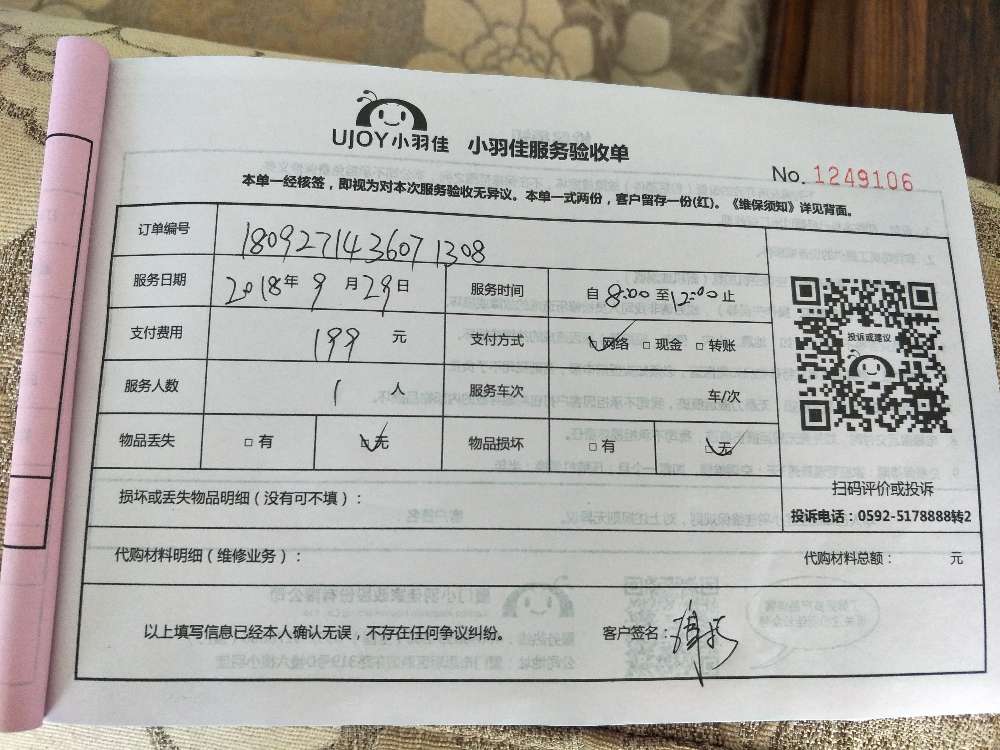 UJOY小羽佳 小羽佳服务验收单
No. 1249106
本单一经核签，即视为对本次服务验收无异议。本单一式两份，客户留存一份(红)。《维保须知》详见背面。
订单编号 180927143607 1308
服务日期 2018年9月29日 服务时间 自8:00至12:00止
支付费用 199 元 支付方式 网络 □现金 □转账
服务人数 1 人 服务车次 车/次
物品丢失 □有 ☑无 物品损坏 □有 ☑无
投诉或建议
扫码评价或投诉
投诉电话：0592-5178888转2
损坏或丢失物品明细（没有可不填）：
代购材料明细（维修业务）： 代购材料总额： 元
以上填写信息已经本人确认无误，不存在任何争议纠纷。 客户签名：